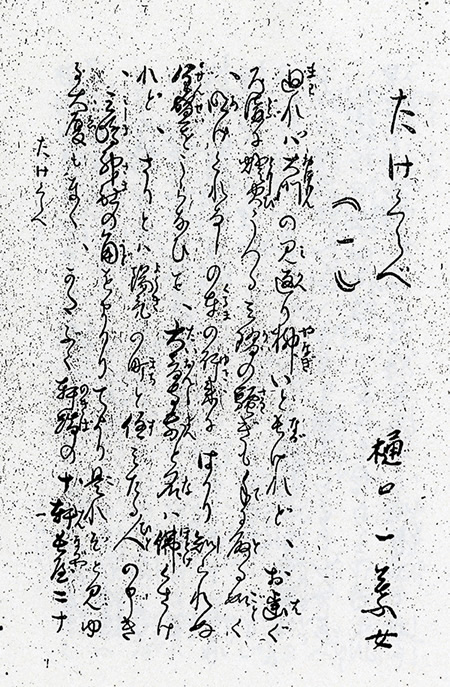 たけくらべ 樋口一葉女
（一）
廻れバ大門の見返り柳いと長けれど、お歯ぐ
ろ溝に燈火うつる三階の騒ぎも手に取る如く
、明けくれなしの車の行来にはかり知られぬ
全盛をうらなひて、大音寺前と名ハ佛くさけ
れど、さりとハ陽気の町と住みたる人の申き
、三嶋神社の角をまがりてより是れぞと見ゆ
る大厦もなく、かたぶく軒端の十軒長屋二十
たけくらべ